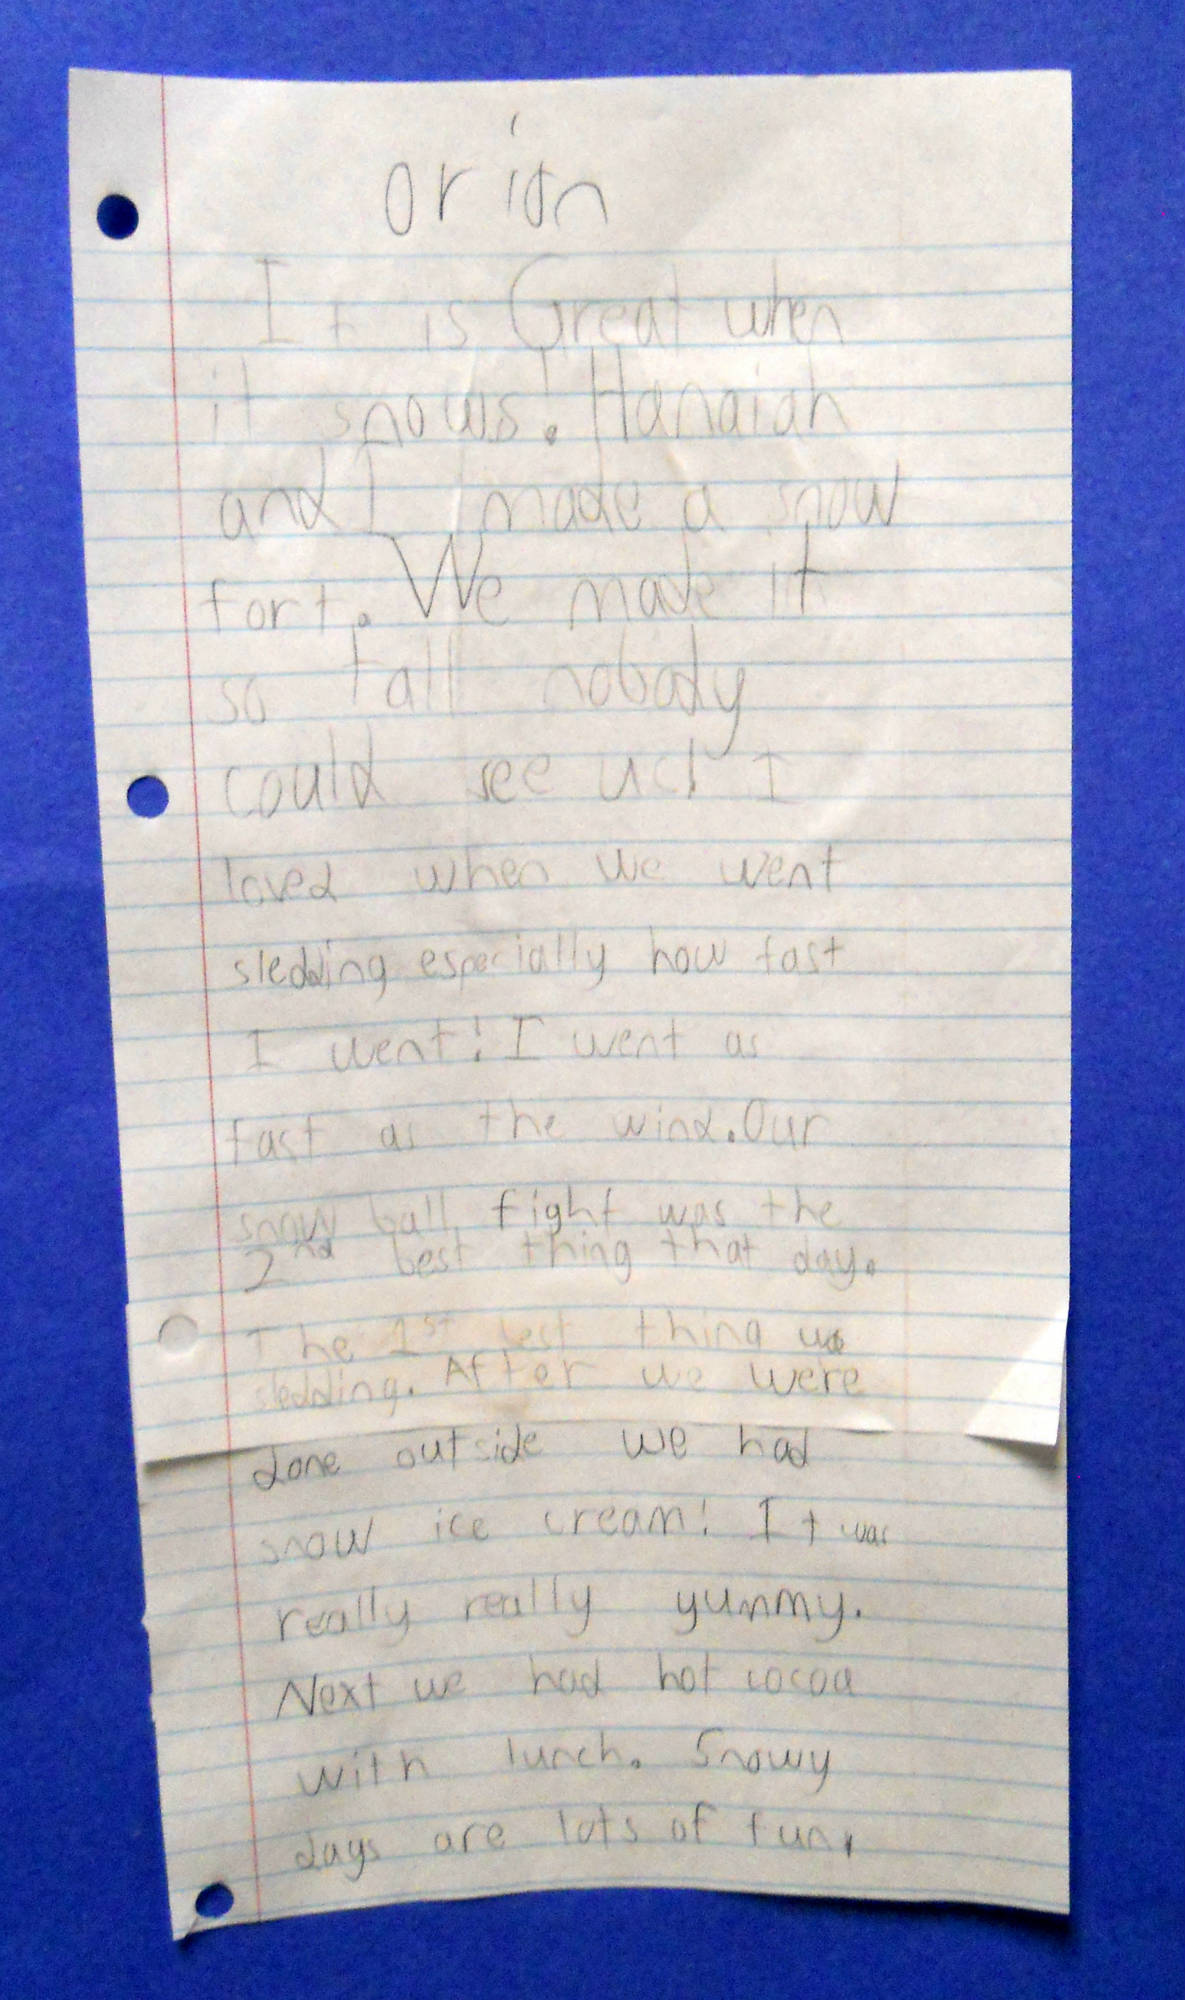 orion
It is Great when
it snows! Hanaiah
and I made a snow
fort. We made it
so tall nobody
could see us! I
loved when we went
sledding especially how fast
I went! I went as
fast as the wind. Our
snow ball fight was the
2nd best thing that day.
The 1st best thing was
sledding. After we were
done outside we had
snow ice cream! It was
really really yummy.
Next we had hot cocoa
with lunch. Snowy
days are lots of fun.